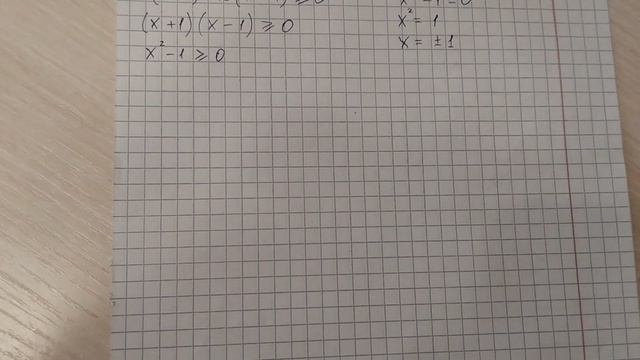 (x + 1) (x - 1) ⩾ 0
x² - 1 ⩾ 0
x² = 1
x = ± 1